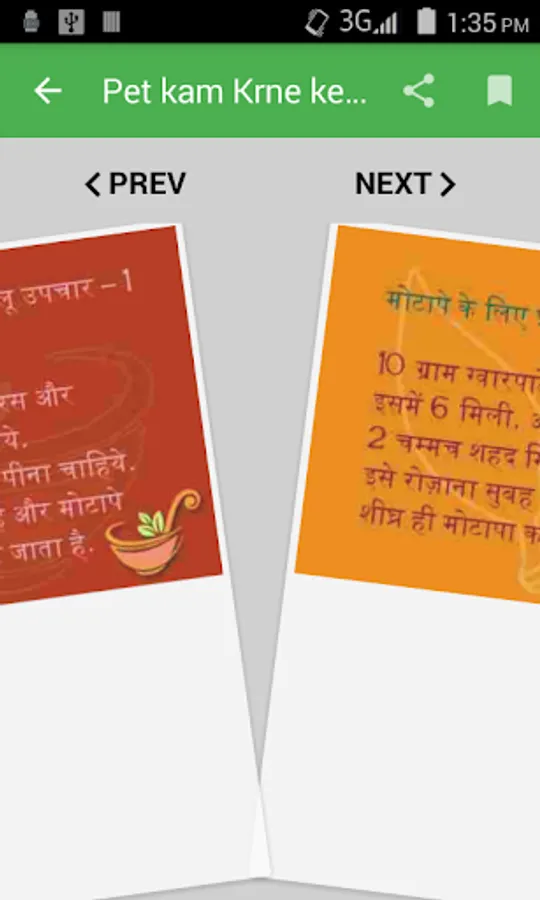 3G 1:35 PM
Pet kam Krne ke...
PREV NEXT
उपचार – 1
रस और
ये.
पीना चाहिये.
और मोटापे
जाता है.
मोटापे के लिए
10 ग्राम ग्वारपाठे
इसमें 6 मिली.
2 चम्मच शहद
इसे रोज़ाना सुबह
शीघ्र ही मोटापा